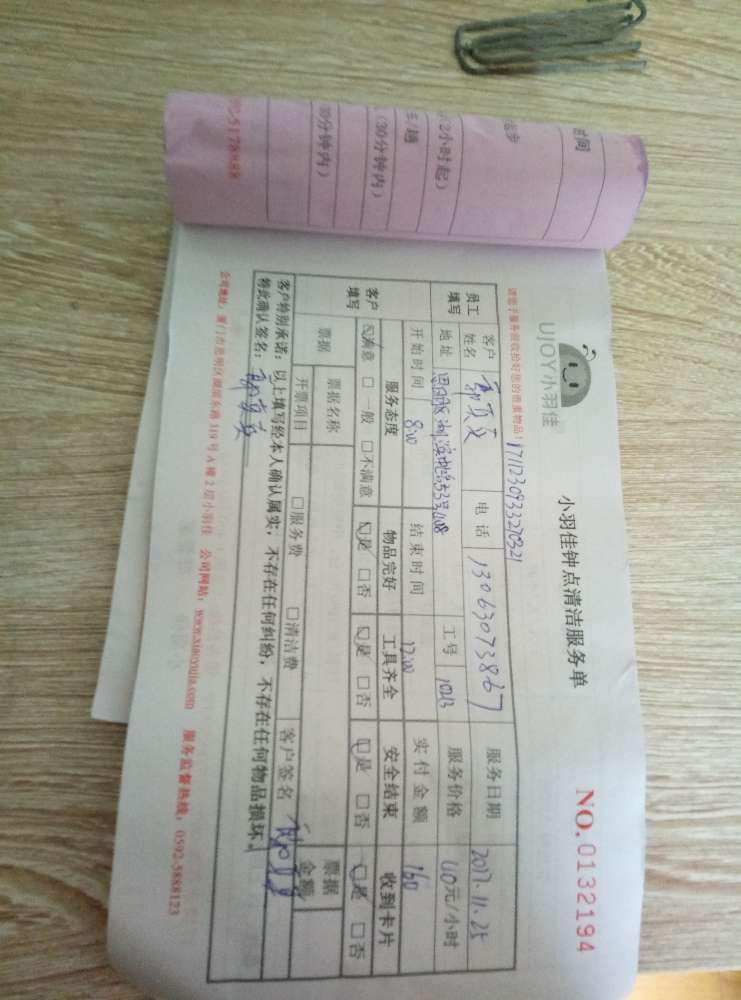 UJOY小羽佳
小羽佳钟点清洁服务单
NO.0132194
请您于服务前收拾好您的贵重物品!
1711230933270321
员工填写
客户姓名
电话 13063073867
服务日期 2017.11.25
地址
工号 1013
服务价格 40元/小时
开始时间 8:00
结束时间 12:00
实付金额 160
客户填写
服务态度 物品完好 工具齐全 安全结束 收到卡片
☑满意 □一般 □不满意 ☑是 □否 ☑是 □否 ☑是 □否 ☑是 □否
票据 票据名称 票据金额
开票项目 □服务费 □清洁费 客户签名
客户特别承诺:以上填写经本人确认属实,不存在任何纠纷,不存在任何物品损坏。
特此确认签名:
公司地址:厦门市思明区湖滨东路319号A幢2层小羽佳 公司网站:www.xiaoyujia.com 服务监督热线:0592-5888123
时间
(2小时起)
(30分钟内)
30分钟内)
92-5178888